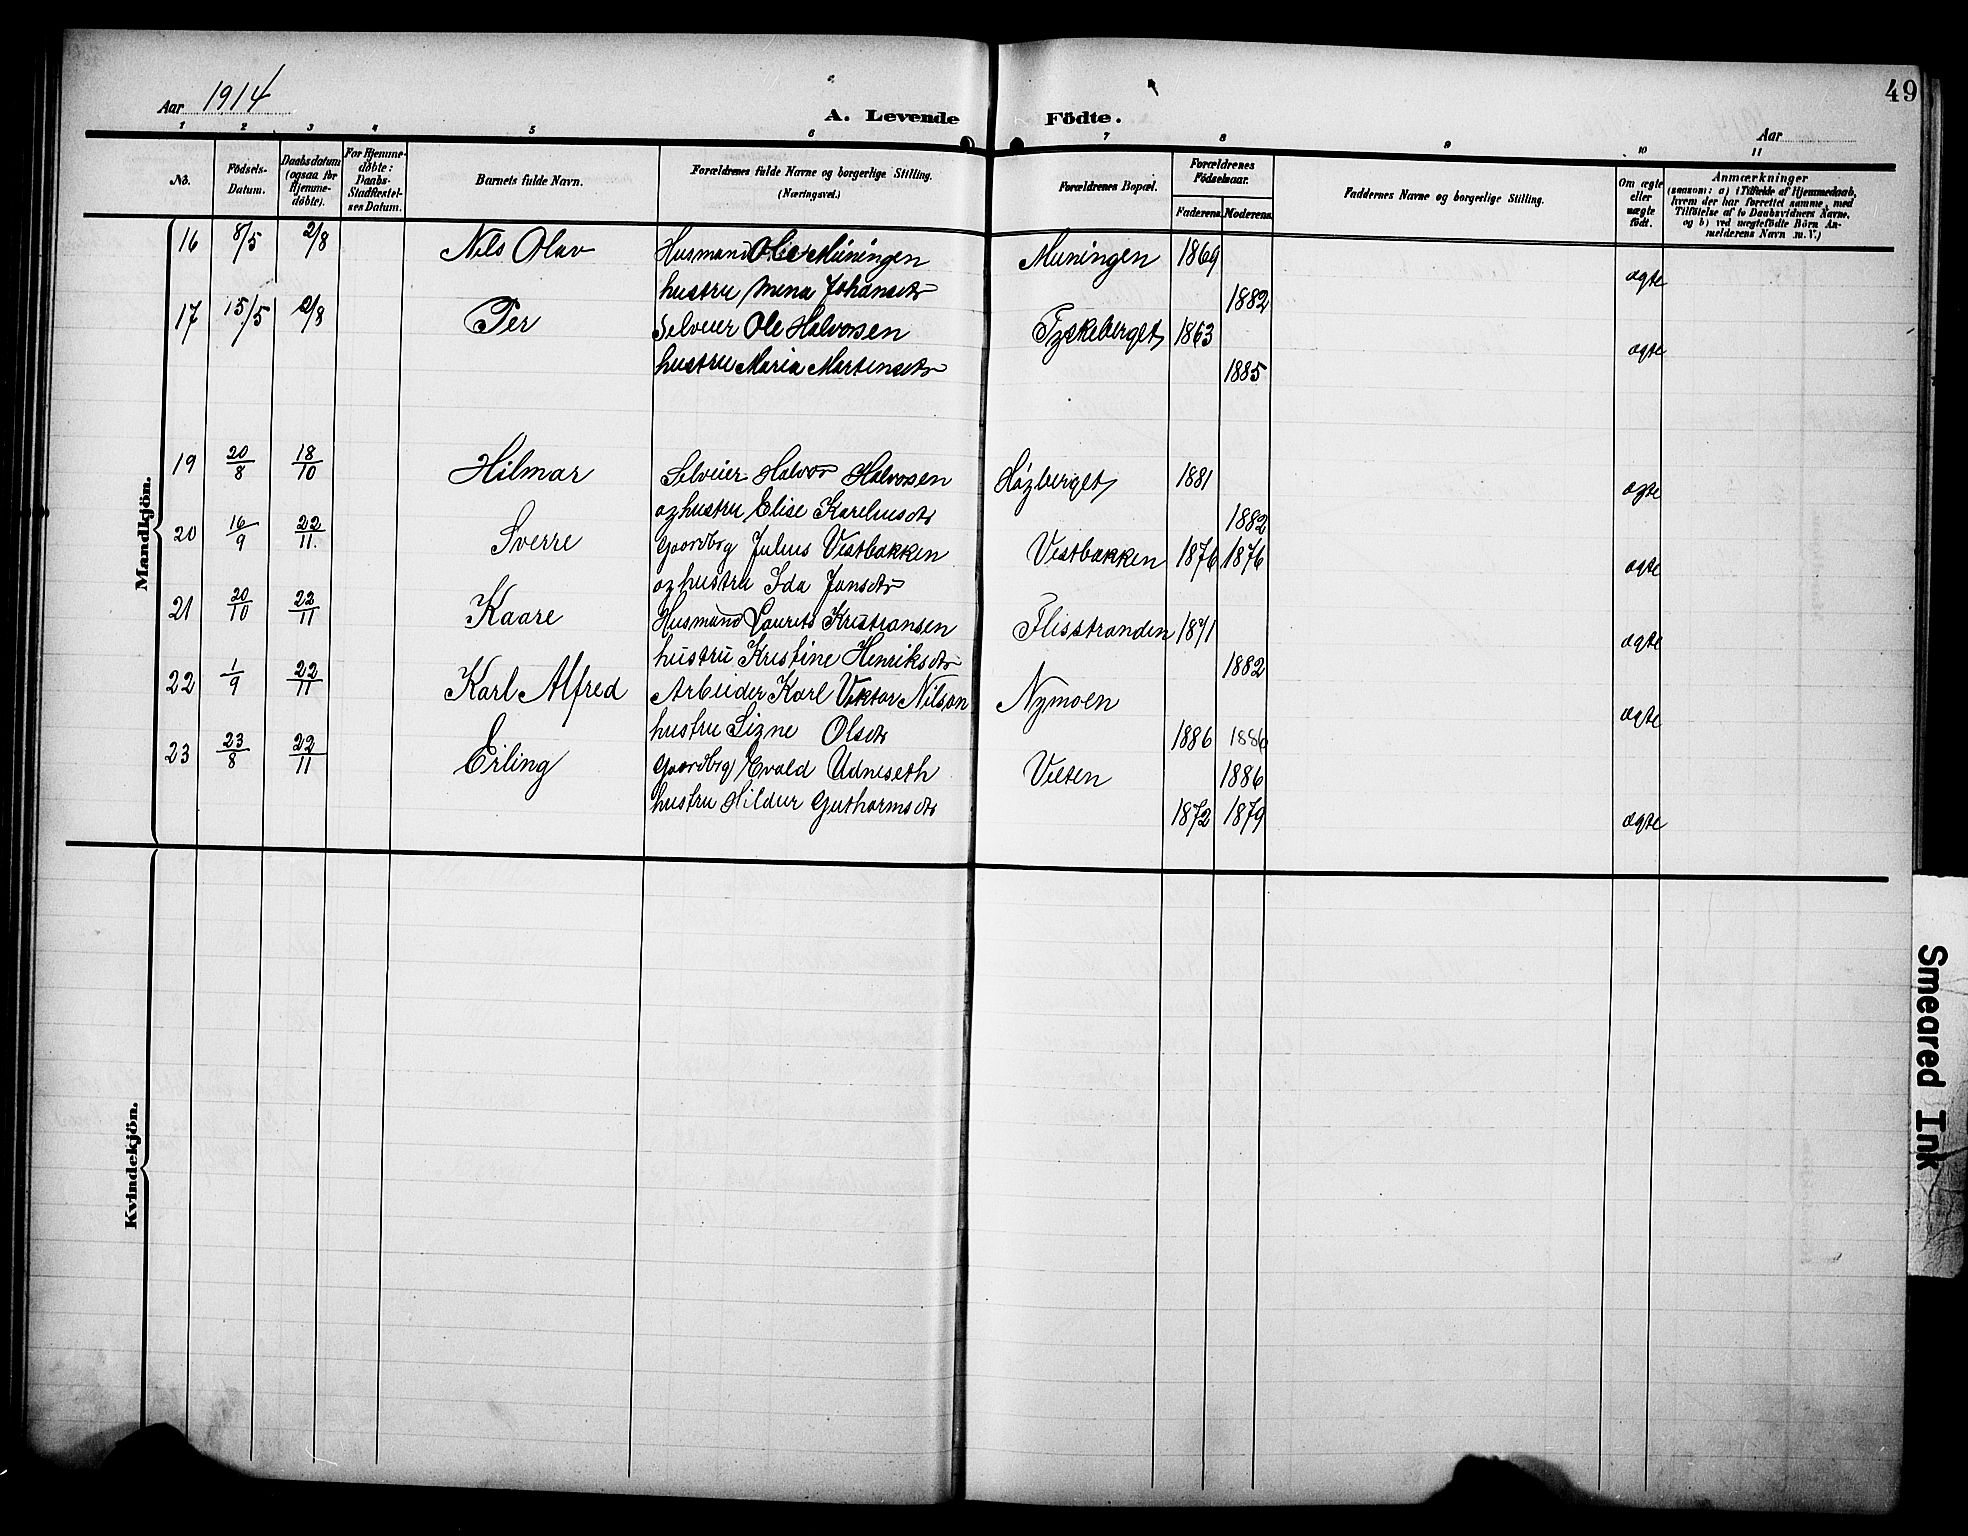 49
Aar 1914
A. Levende Födte.
Aar
1 2 3 4 5 6 7 8 9 10 11
No.
Födsels-Datum.
Daabsdatum (ogsaa for Hjemmedöbte).
For Hjemmedöbte: Daabs-Stadfæstelses Datum.
Barnets fulde Navn.
Forældrenes fulde Navne og borgerlige Stilling.
(Næringsvei.)
Forældrenes Bopæl.
Forældrenes Födselsaar.
Faderens. Moderens.
Faddernes Navne og borgerlige Stilling.
Om ægte eller uægte födt.
Anmærkninger
(saasom: a) i Tilfælde af Hjemmedaab,
hvem der har forrettet samme, med
Tilföielse af to Daabsvidners Navne,
og b) ved uægtefödte Börn An-
melderens Navn m. V.)
Mandkjön.
16 8/5 2/8 Nils Olav Husmand Ole Müningen Muningen 1869 ægte
hustru Mina Johansdtr 1882
17 15/5 2/8 Per Selveier Ole Halvorsen Tyskeberget 1863 ægte
hustru Maria Martensdtr 1885
19 20/8 18/10 Hilmar Selveier Halvor Halvorsen Høgberget 1881 ægte
og hustru Elise Kareliusdtr 1882
20 16/9 22/11. Sverre Gaardbrg Julius Vestbakken Vestbakken 1876 1876 ægte
og hustru Ida Jansdtr
21 20/10 22/11 Kaare Husmand Laurits Kristiansen Flisstranden 1871 ægte
hustru Kristine Henriksdtr 1882
22 1/9 22/11 Karl Alfred Arbeider Karl Viktor Nilson Nymoen ægte
hustru Signe Olsdtr 1886 1886
23 23/8 22/11 Erling Gaardbrg Evald Udneseth Velten 1886
hustru Hildur Guthormsdtr 1872 1879 ægte
Kvindekjön.
Smeared Ink